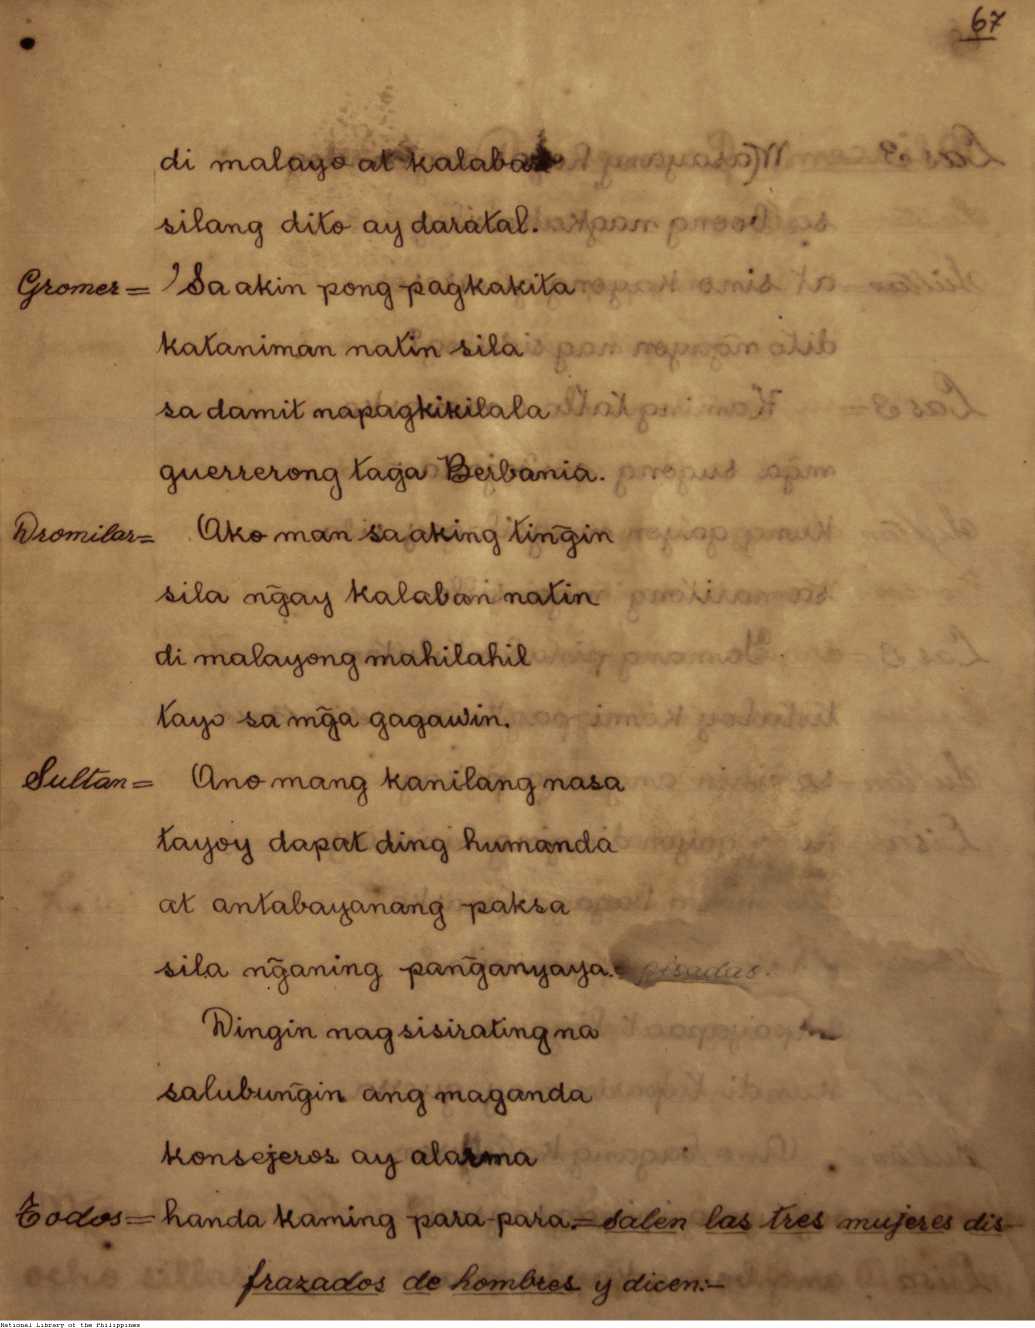 67
di malayo at kalaban
silang dito ay daratal.
Gromer = Sa akin pong pagkakita
kataniman natin sila
sa damit napagkikilala
guerrerong taga Berbania.
Dromilar = Ako man sa aking tin̄gin
sila n̄gay kalaban natin
di malayong mahilahil
tayo sa mn̄ga gagawin.
Sultan = Ano mang kanilang nasa
tayoy dapat ding humanda
at antabayanang paksa
sila n̄ganing pan̄ganyaya.
Dingin nagsisirating na
salubun̄gin ang maganda
konsejeros ay alarma
Todos = handa kaming para-para. = salen las tres mujeres dis-
frazados de hombres y dicen:-
National Library of the Philippines